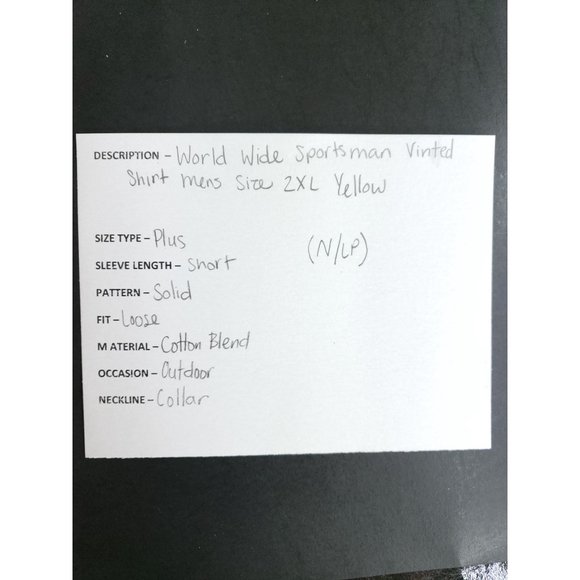 DESCRIPTION - World Wide Sportsman Vinted
Shirt Mens Size 2XL Yellow
SIZE TYPE - Plus
(N/LP)
SLEEVE LENGTH - Short
PATTERN - Solid
FIT - Loose
MATERIAL - Cotton Blend
OCCASION - Outdoor
NECKLINE - Collar